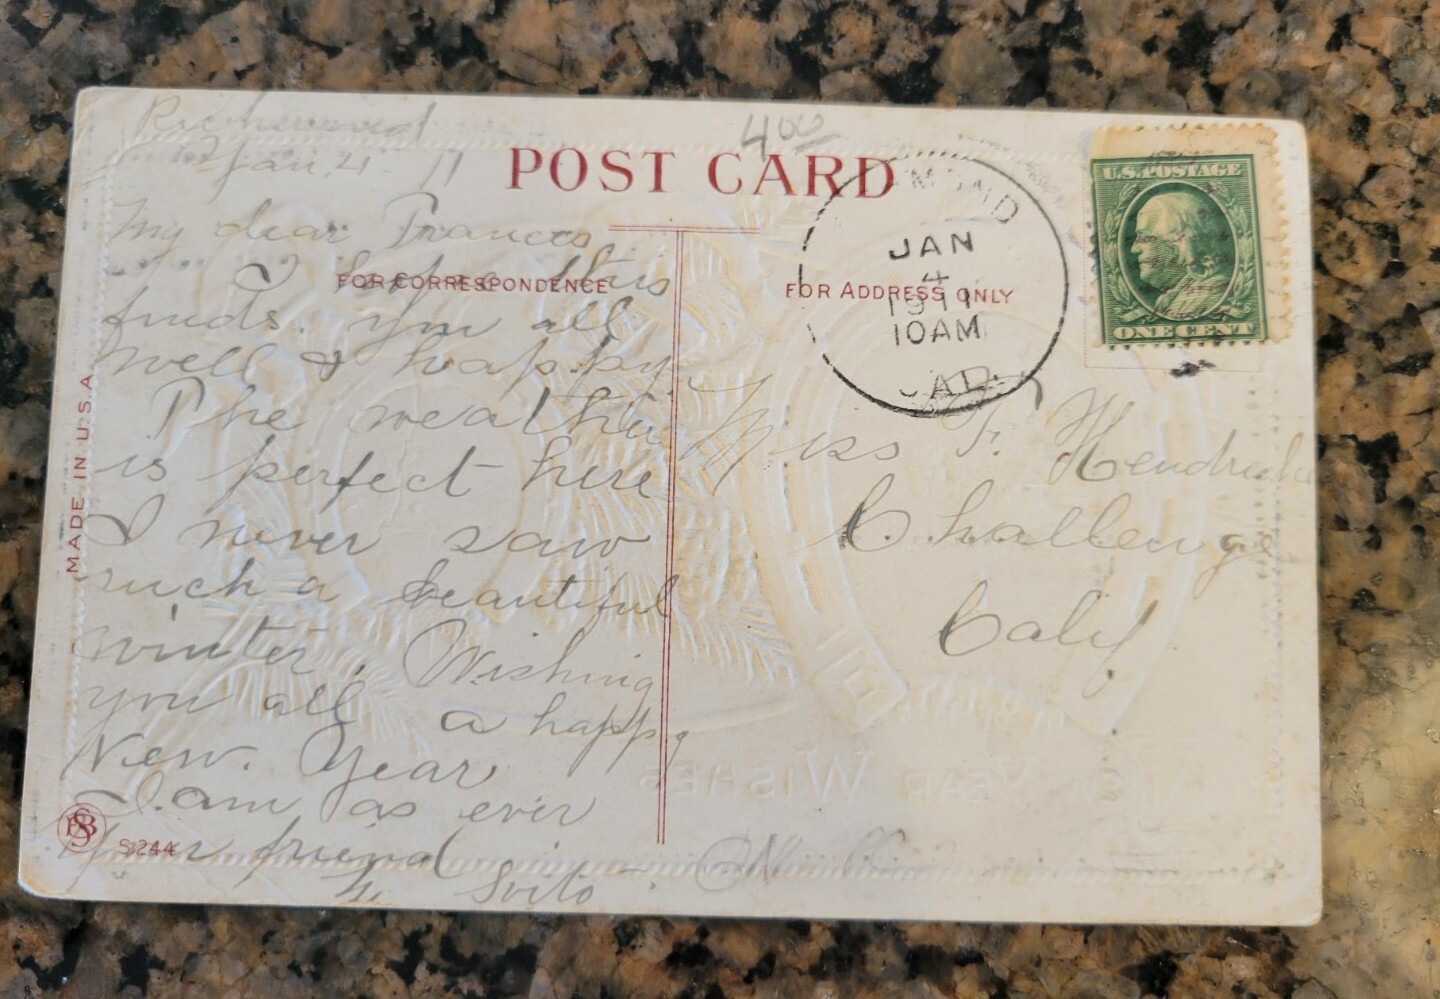 Richmond
Jan. 4 - 11
400
POST CARD
U.S. POSTAGE
ONE CENT
MOND
JAN
4
1911
10AM
CAL.
FOR CORRESPONDENCE
FOR ADDRESS ONLY
My dear Frances
I hope this
finds you all
well & happy.
The weather
is perfect here
I never saw
such a beautiful
winter. Wishing
you all a happy
New. Year
I am as ever
your friend
Miss F. Hendricks
Challenge
Calif
MADE IN U.S.A
S 244
YEAR WISHES